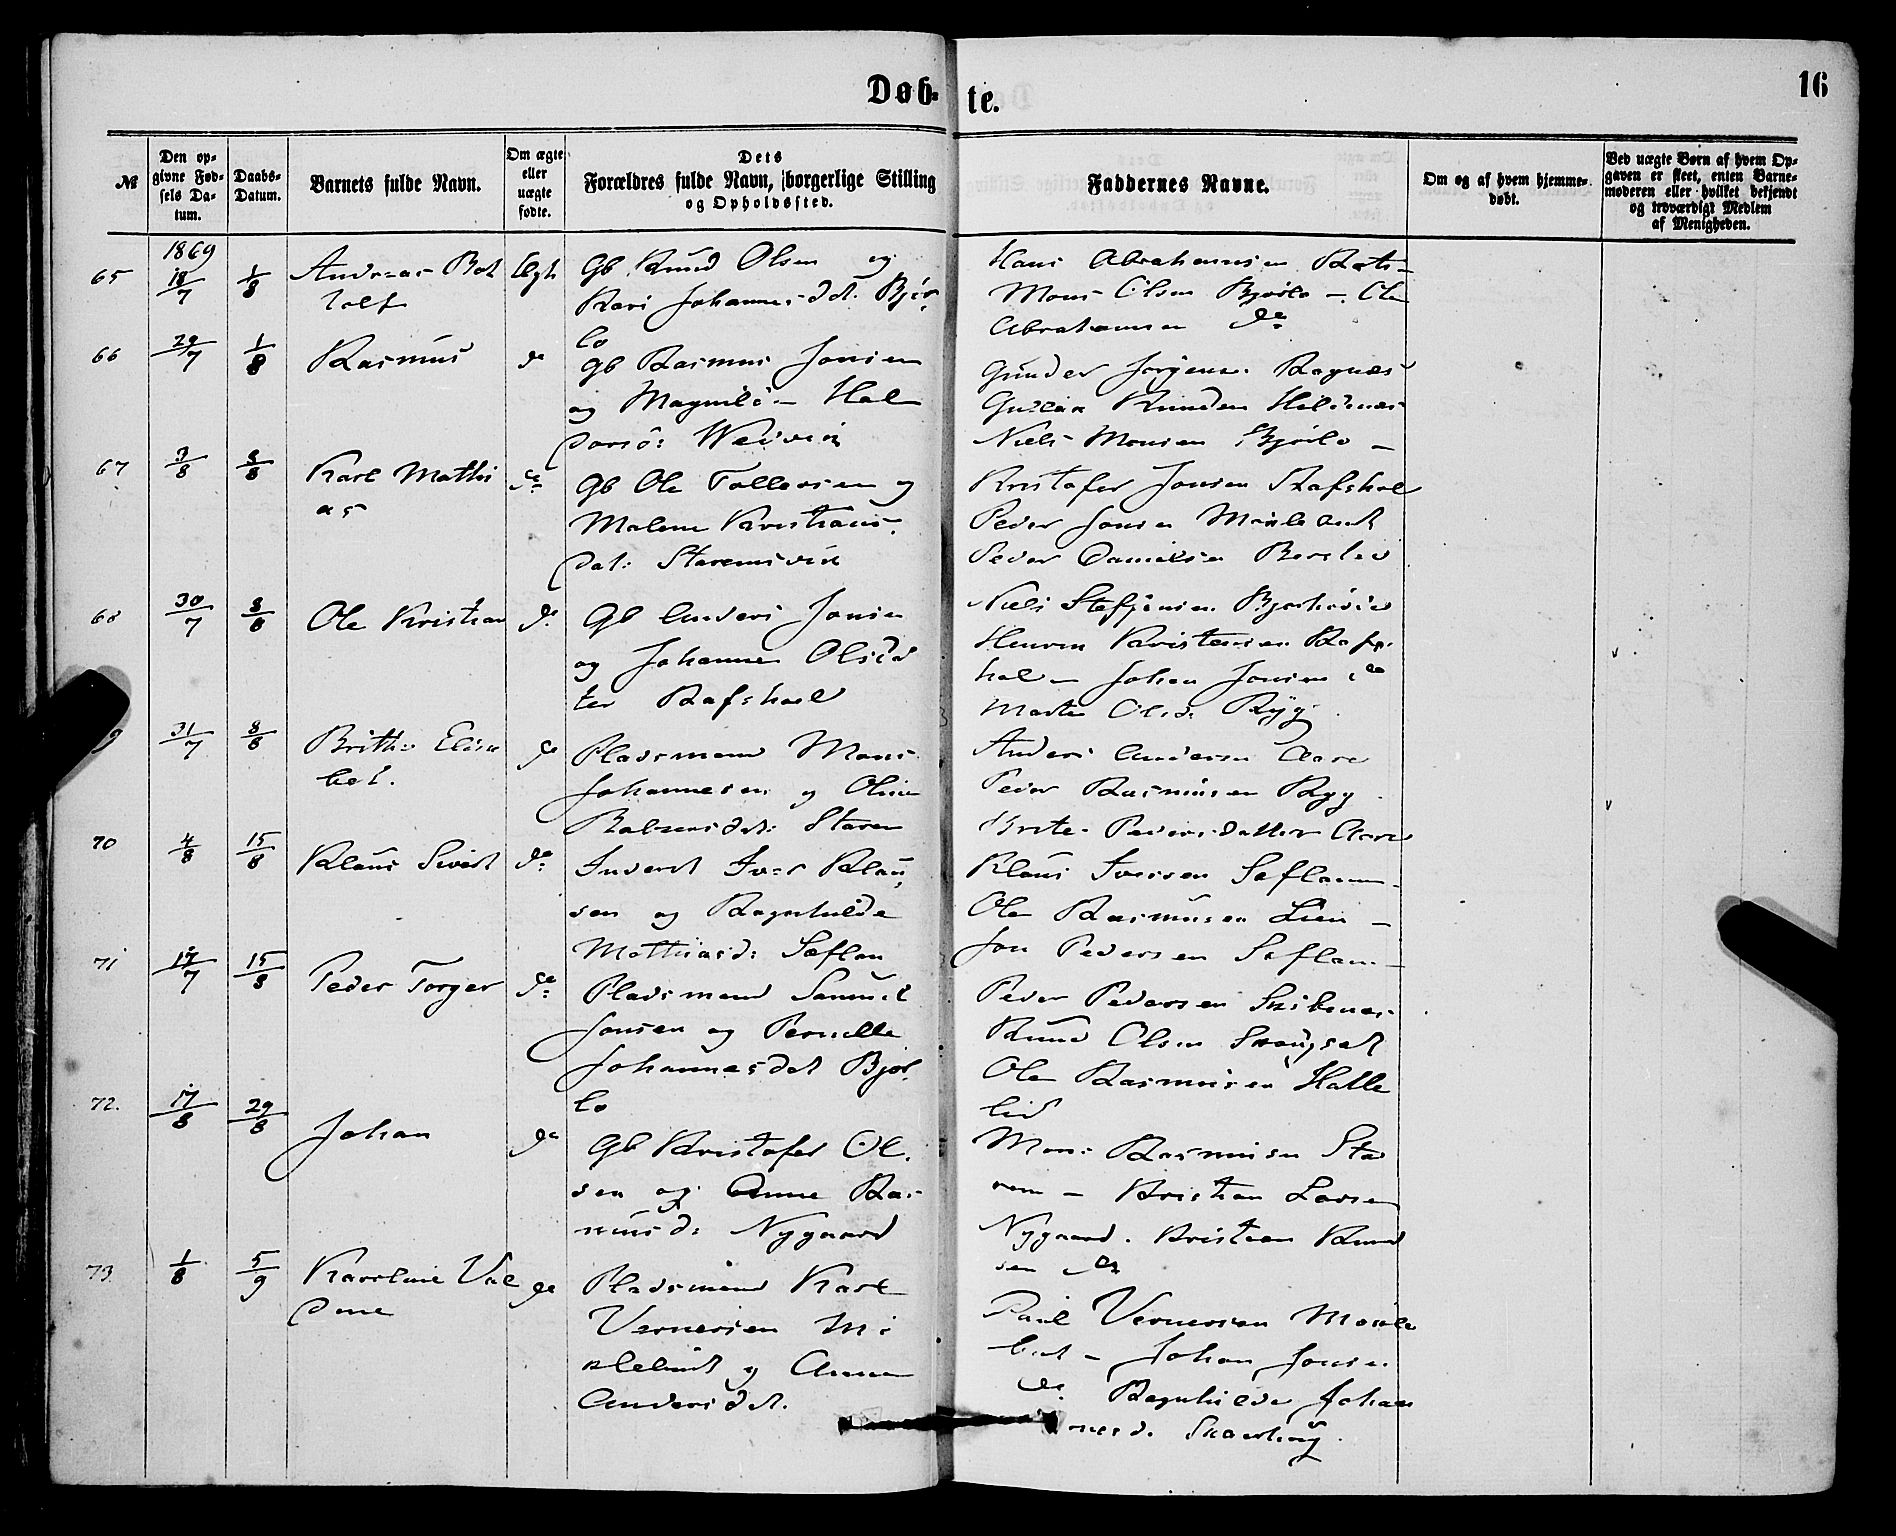 Døb-
te.
16
№
Den op-
givne Fød-
sels Da-
tum.
Daabs-
Datum.
Barnets fulde Navn.
Om ægte
eller
uægte
fødte.
Dets
Forældres fulde Navn, borgerlige Stilling
og Opholdssted.
Faddernes Navne.
Om og af hvem hjemme-
døbt.
Ved uægte Børn af hvem Op-
gaven er skeet, enten Barne-
moderen eller hvilket bekjendt
og troværdigt Medlem
af Menigheden.
1869
65 18/7 1/8 Andreas Bot
holf
Ægt
Gb Knud Olsen og
Kari Johannesdt. Bjør
lo
Hans Abrahamsen
Mons Olsen Bjørlo - Ole
Abrahamsen do
66 29/7 1/8 Rasmus
do
Gb Rasmus Jonsen
og Magnild Hal
dorsd:
Gunder Ragnæs
Knudsen Hildenæs
Niels Monsen Bjørlo -
67 3/8 8/8 Karl Mathi
as
do
Gb Ole Tollevsen og
Malene Kristians
dat: Starensvik
Kristofer Jonsen Rafshol
Peder Jonsen
Peder Danielsen
68 30/7 8/8 Ole Kristian
do
Gb Anders Jonsen
og Johanne Olsdat
ter Rafshol
Niels
Kristensen Rafs
hol - Johan Jonsen do
Olsd: Ryg
31/7 8/8 Brithe Elisa
bet.
do
Pladsmand Mons
Johannesen og Oline
Staren
Anders Andersen Aare
Peder Rasmusen Ryg
Brite Pedersdatter Aare
70 4/8 15/8 Klaus Sivert
do
Inderst Iver Klau
sen og Ragnhilde
Mathiasd: Sæflan
Klaus Iversen Seflann
Ole Rasmusen Lien -
Jon Pedersen Seflann -
71 17/7 15/8 Peder Torger
do
Pladsmand Samuel
Jonsen og Pernille
Johannesdat Bjør
lo
Peder Pedersen Skibenes
Knud Olsen
Ole Rasmusen Halle
lid
72. 17/8 29/8 Johan
do
Gb Kristofer Ol
sen og Anne Ras
musd: Nygaard
Mons Rasmusen Sta
ren - Kristian Larsen
Nygaard. Kristian Knud
sen do
73. 1/8 5/9 Karoline Val
dine
do
Pladsmand Karl
Vernersen Mi
klebust og Anne
Andersdat.
Paul Vernersen
bust - Johan Jonsen
do Ragnhilde Johan
nesd.